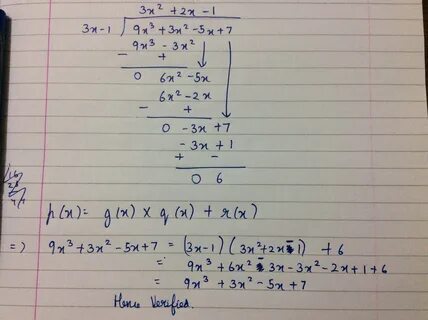 3x² + 2x - 1
3x-1 ) 9x³ + 3x² - 5x + 7
9x³ - 3x²
- +
0 6x² - 5x
6x² - 2x
- +
0 - 3x + 7
- 3x + 1
+ -
0 6
p(x) = g(x) × q(x) + r(x)
=) 9x³ + 3x² - 5x + 7 = (3x-1) (3x² + 2x - 1) + 6
= 9x³ + 6x² - 3x - 3x² - 2x + 1 + 6
= 9x³ + 3x² - 5x + 7
Hence Verified.